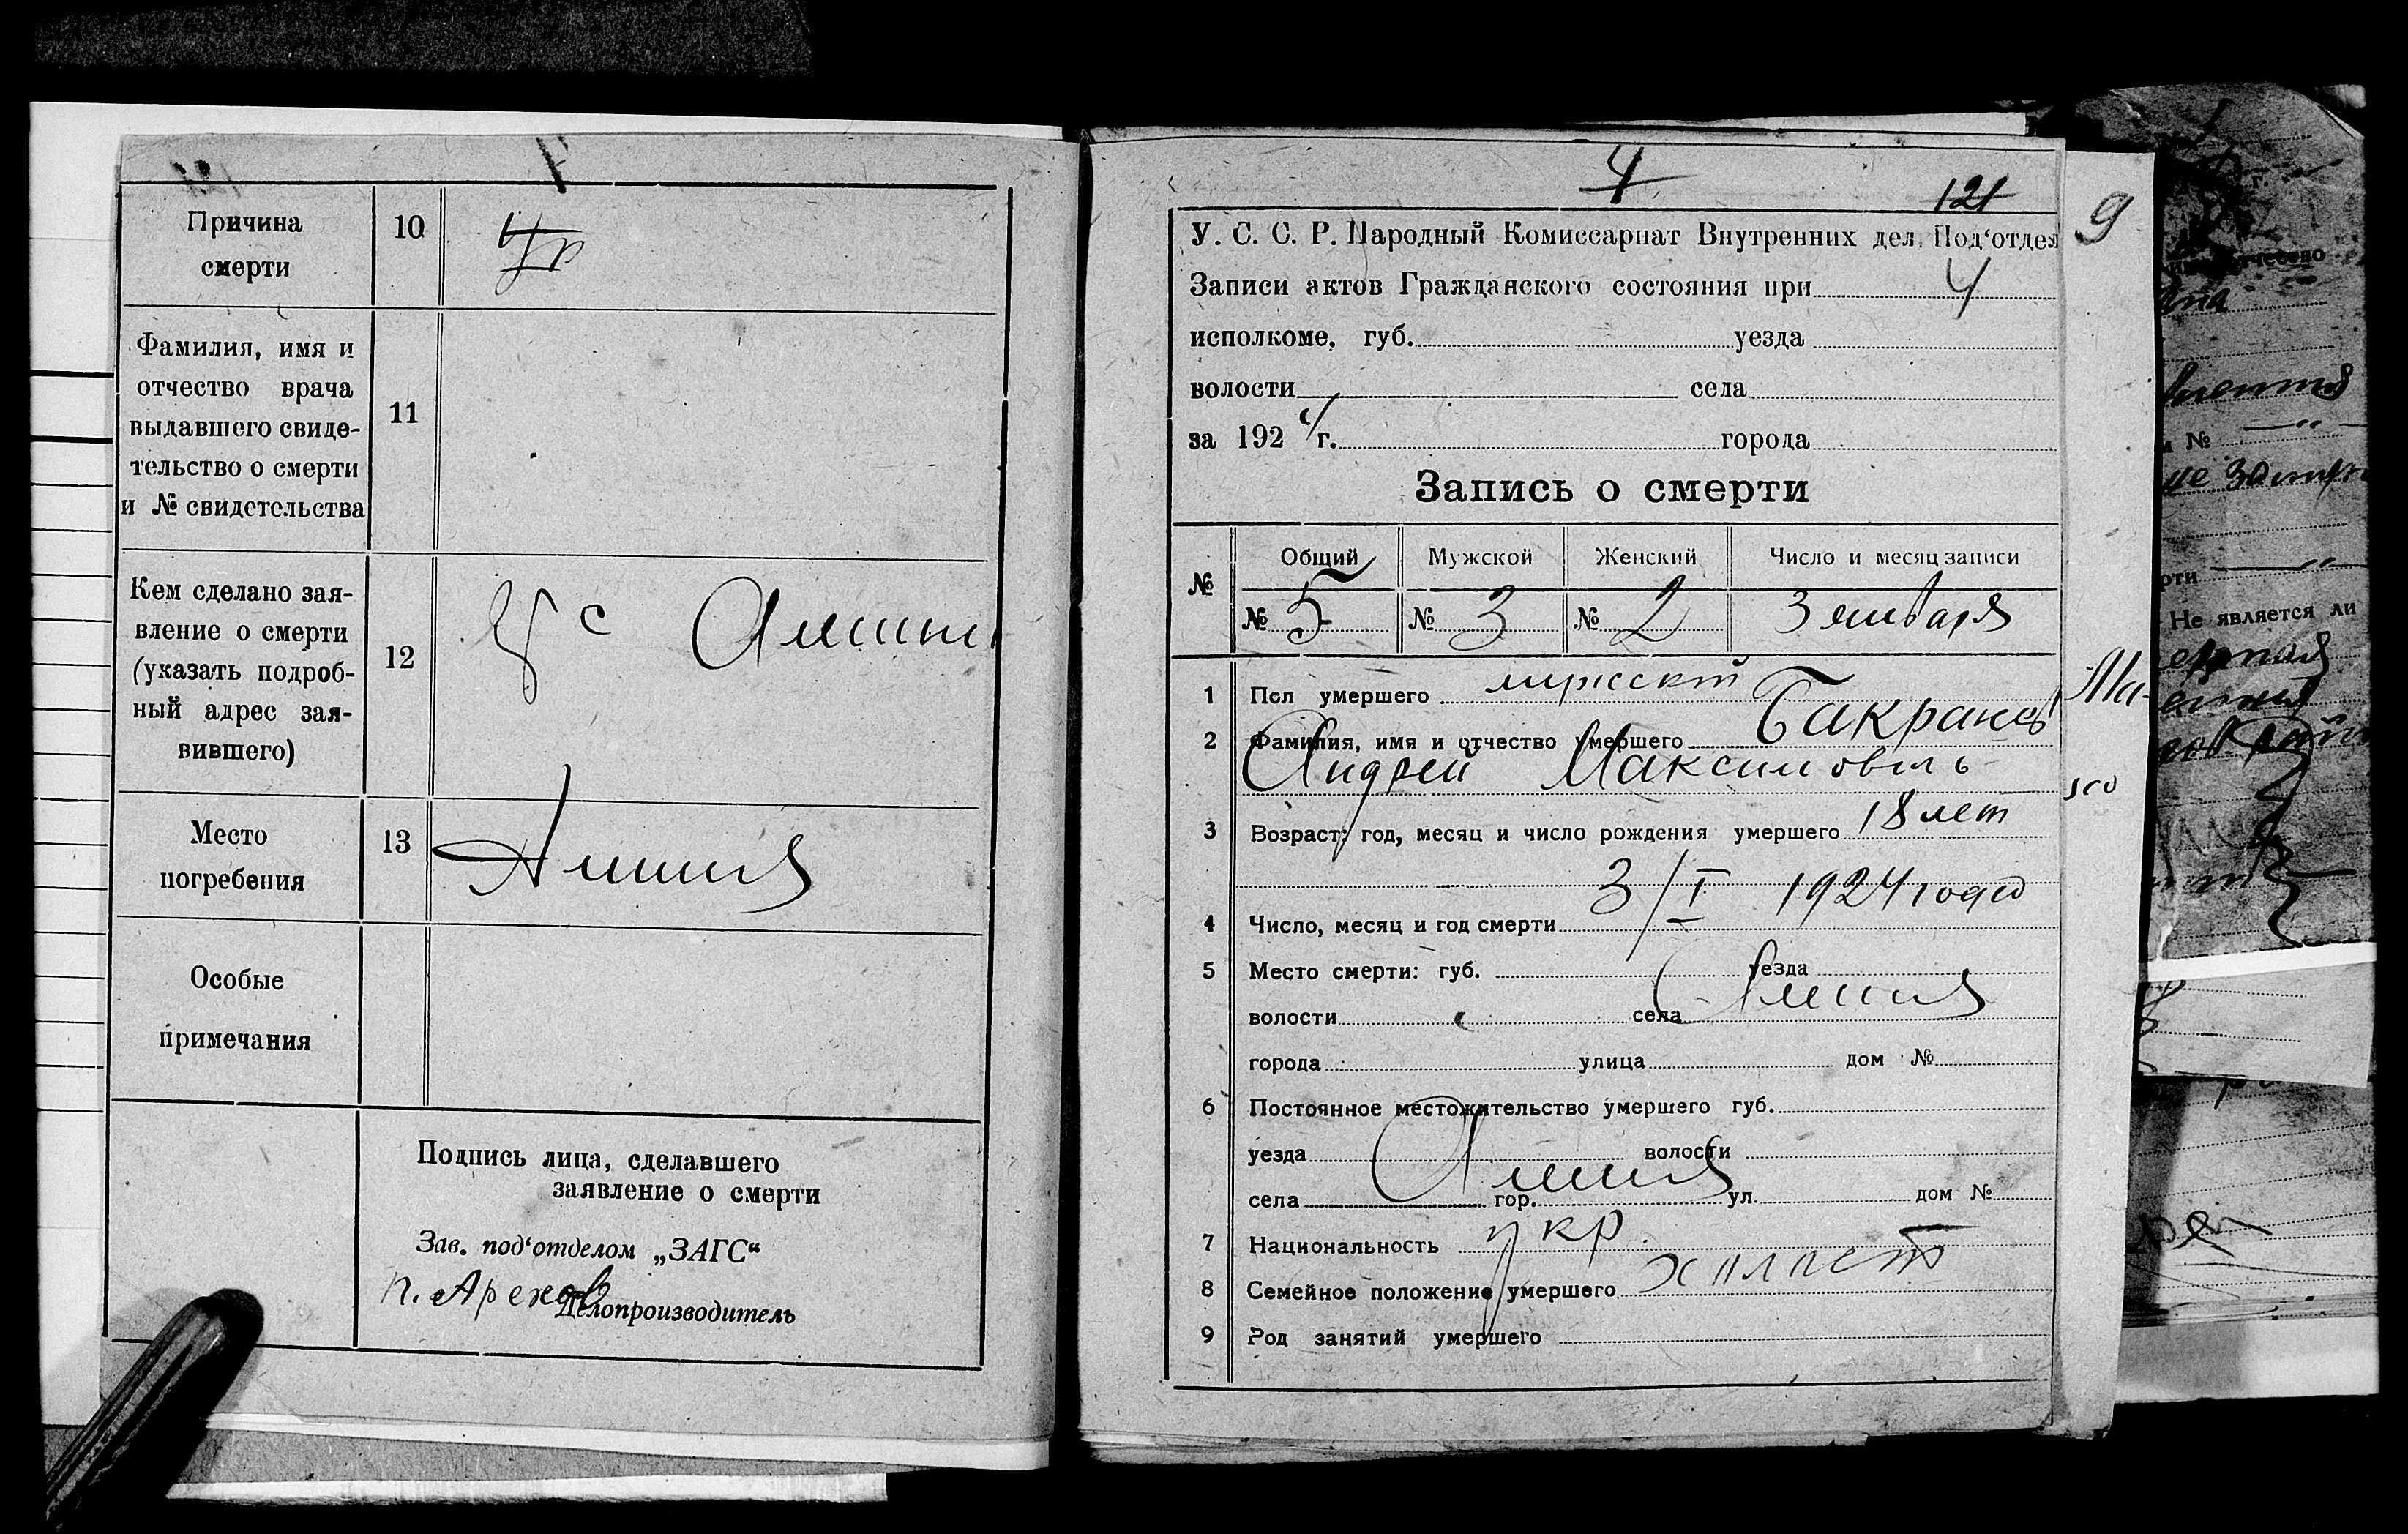 Причина
смерти
10
Фамилия, имя и
отчество врача
выдавшего свиде-
тельство о смерти
и № свидетельства
11
Кем сделано зая-
вление о смерти
(указать подроб-
ный адрес зая-
вившего)
12
с
Место
погребения
13
Особые
примечания
Подпись лица, сделавшего
заявление о смерти
Зав. под‘отделом „ЗАГС“
Делопроизводитель
4
121
У. С. С. Р. Народный Комиссариат Внутренних дел. Под‘отдел
9
Записи актов Гражданского состояния при 4
исполкоме, губ. уезда
волости села
за 1924 г. города
Запись о смерти
№ Общий Мужской Женский Число и месяц записи
№ 5 № 3 № 2 3 января
1 Пол умершего мужской
2 Фамилия, имя и отчество умершего
Андрей Максимовичь
3 Возраст: год, месяц и число рождения умершего 18 лет
4 Число, месяц и год смерти 3/I 1924 года
5 Место смерти: губ. уезда
волости села
города улица дом №
6 Постоянное местожительство умершего губ.
уезда волости
села гор. ул. дом №
7 Национальность укр.
8 Семейное положение умершего холост
9 Род занятий умершего
№
Не является ли